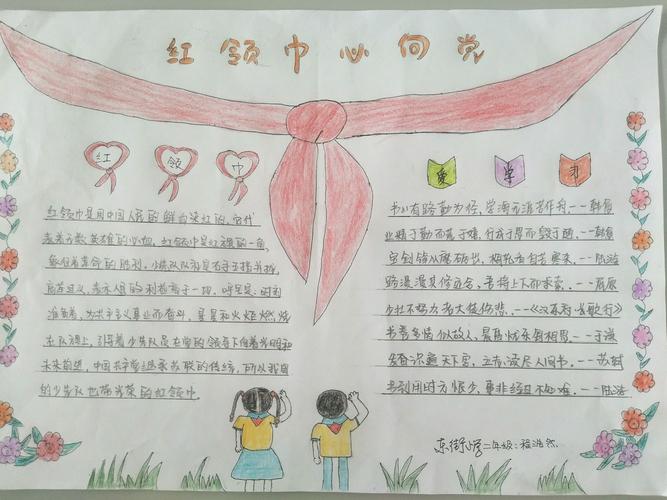 红领巾心向党
红 领 巾
爱 学 习
红领巾是用中国人民的鲜血染红的,它代
表着无数英雄的心血,红领巾是红旗的一角,
象征着革命的胜利。少先队队礼是右手五指并拢,
高举过头,表示人民的利益高于一切。呼号是:时刻
准备着,为共产主义事业而奋斗。星星和火炬燃烧
在队旗上,引导着少先队员在党的领导下向着光明和
未来前进。中国共产党继承苏联的传统,所以我国
的少先队也带光荣的红领巾。
书山有路勤为径,学海无涯苦作舟。--韩愈
业精于勤而荒于嬉,行本于思而毁于随。--韩愈
宝剑锋从磨砺出,梅花香自苦寒来。--陆游
路漫漫其修远兮,吾将上下而求索。--屈原
少壮不努力老大徒伤悲。--《汉乐府长歌行》
书卷多情似故人,晨昏忧乐每相思。--于谦
发奋识遍天下字,立志读尽人间书。--苏轼
书到用时方恨少,事非经过不知难。--陆游
东街小学二年级:程浩然